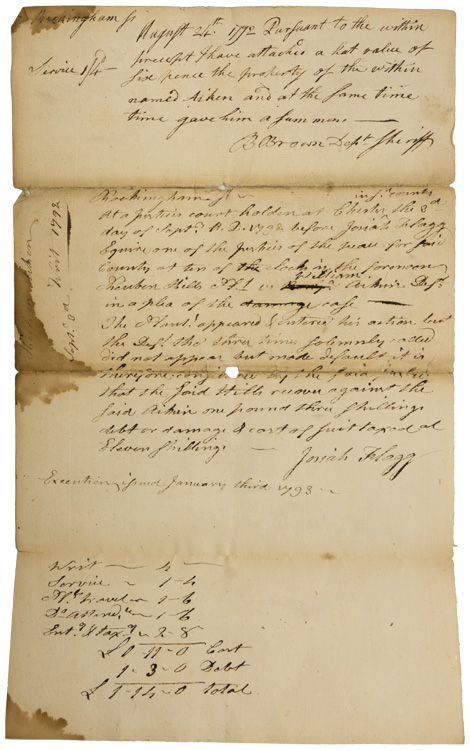 Rockingham Ss
August 24th 1792 Pursuant to the within
precept I have attached a hat value of
Service 1/4d
six pence the property of the within
named Aiken and at the same time
time gave him a summons —
B Brown Dept Sheriff
Rockingham Ss — in sd. County
At a justies court holden at Chester the 3d
day of Septr. A.D. 1792 before Josiah Flagg
Equire one of the justies of the peace for said
County at ten of the clock in the forenoon
Reuben Hills Plt vs William Aiken Deft
in a plea of the damage case —
The Plant. appeared & entered his action but
the Deft. tho three times solemnly called
did not appear but made default it is
therefore considered by the said justice
that the said Hills recover against the
said Aiken one pound three shillings
debt or damage & cost of suit taxed at
Eleven shillings —
Josiah Flagg
Execution issued January third 1793 —
Septr. 3d 1792
Writ 1792
Writ — 4 —
Service — 1-4
Pl. travel — 1-6
Do. attend.ce — 1-6
Ent.g & tax.g — 2-8
£0-11-0 Cost
1-3-0 Debt
£1-14-0 total